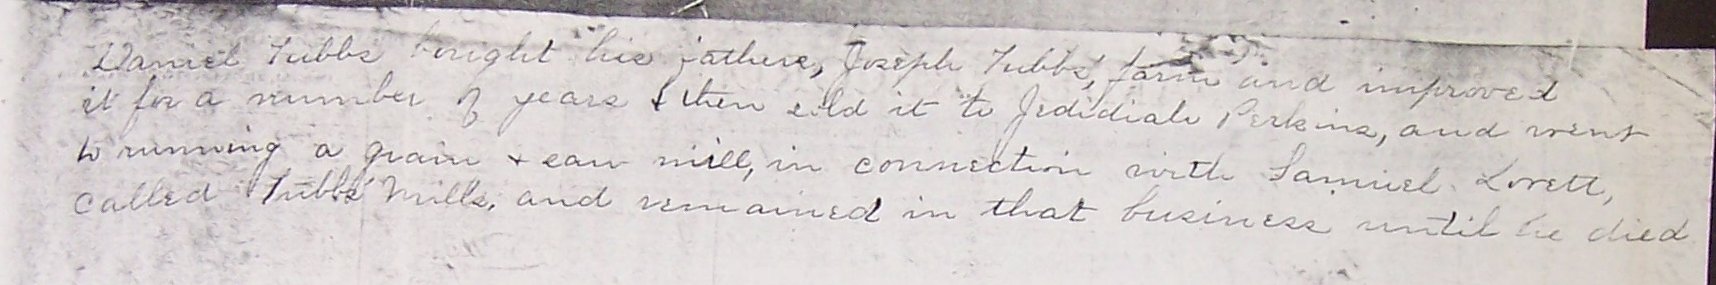 Daniel Tubbs bought his fathers, Joseph Tubbs', farm and improved
it for a number of years & then sold it to Jedidiah Perkins, and went
to running a grain & saw mill, in connection with Samuel Lovett,
called Tubbs' Mills, and remained in that business until he died